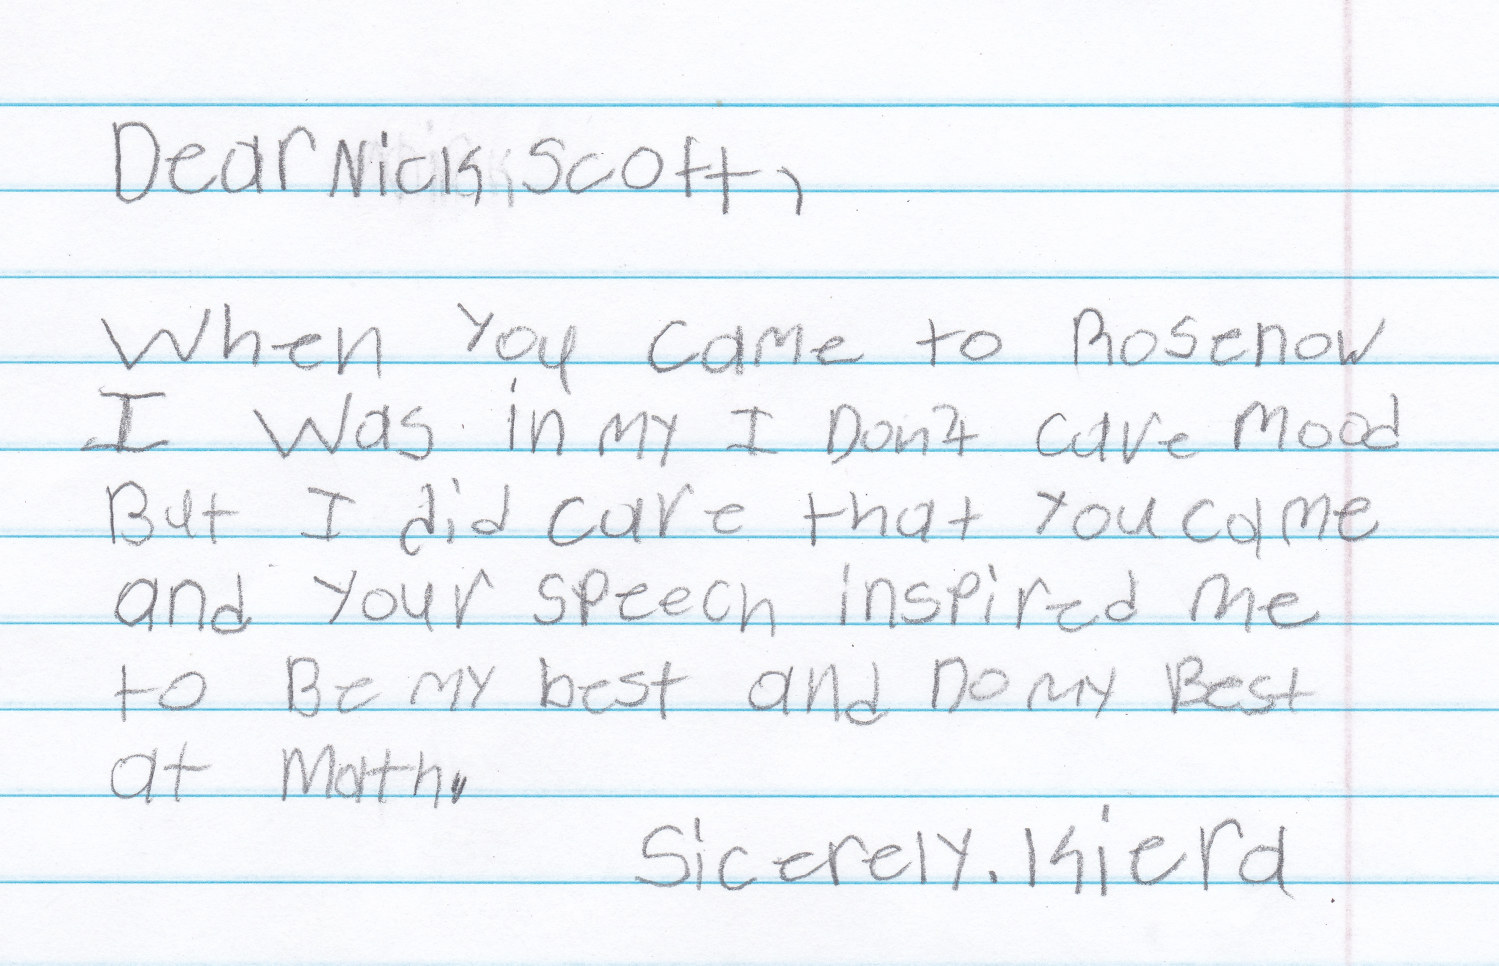 Dear Nick, Scott,
When you came to Rosenow
I was in my I Don't care mood
But I did care that you came
and your speech inspired me
to Be my best and Do my Best
at Math.
Sicerely. Kiera